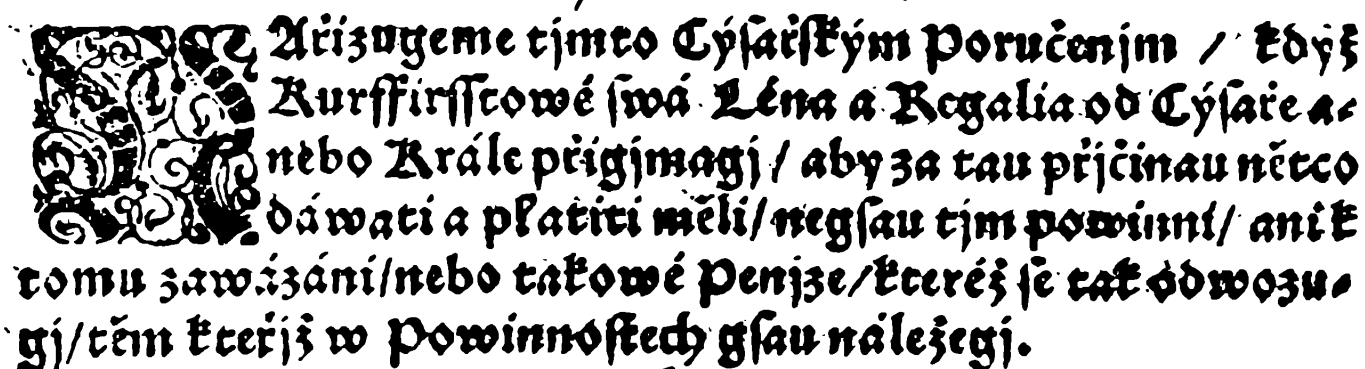 NAřizugeme tjmto Cýſařſkým Poručenjm / když
Kurffirſſtowé ſwá Léna a Regalia od Cýſaře a-
nebo Krále přigjmagj / aby za tau přjčinau nětco
dáwati a platiti měli/negſau tjm powinni/ ani k
tomu zawázáni/nebo takowé Penjze/kteréž ſe tak odwozu-
gj/těm kteřjž w Powinnoſtech gſau náležegj.